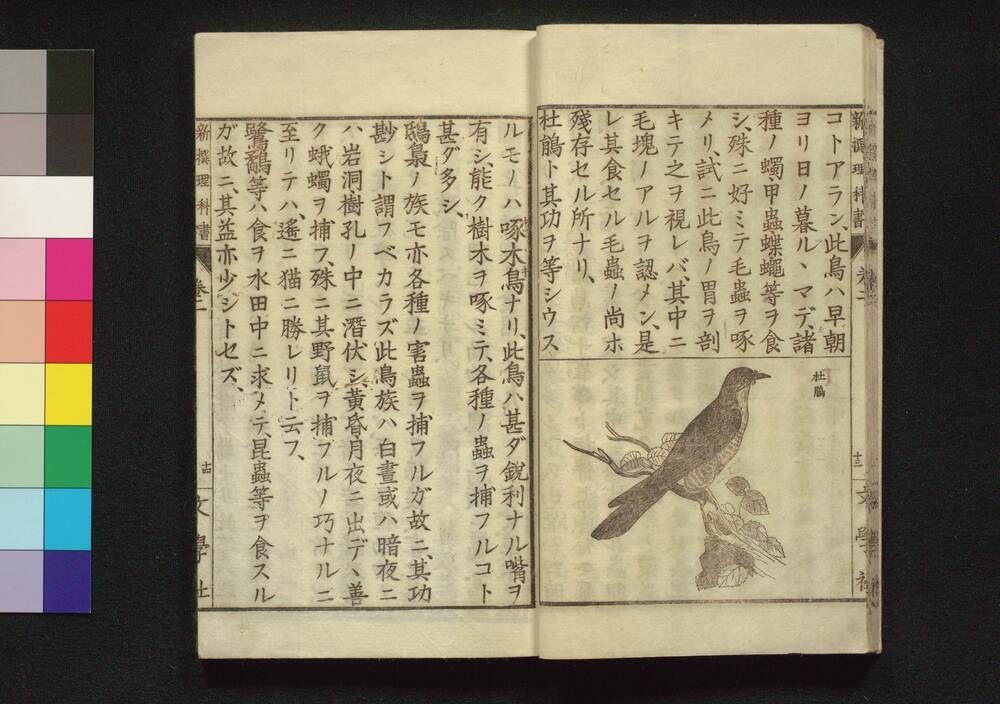 コトアラン、此鳥ハ早朝
ヨリ日ノ暮ルヽマデ、諸
種ノ蠋、甲蟲蝶蠅等ヲ食
シ、殊ニ好ミテ毛蟲ヲ啄
メリ、試ニ此鳥ノ胃ヲ剖
キテ之ヲ視レバ、其中ニ
毛塊ノアルヲ認メン、是
レ其食セル毛蟲ノ尚ホ
殘存セル所ナリ、
杜鵑ト其功ヲ等シウス
杜鵑
新撰理科書
卷二
十三
文學社
ルモノハ啄木鳥ナリ、此鳥ハ甚ダ銳利ナル嘴ヲ
有シ、能ク樹木ヲ啄ミテ、各種ノ蟲ヲ捕フルコト
甚ダ多シ、
鴟梟ノ族モ亦各種ノ害蟲ヲ捕フルガ故ニ、其功
尠シト謂フベカラズ此鳥族ハ白晝或ハ暗夜ニ
ハ岩洞、樹孔ノ中ニ潛伏シ、黃昏、月夜ニ出デヽ善
ク蛾蠋ヲ捕フ、殊ニ其野鼠ヲ捕フルノ巧ナルニ
至リテハ、遙ニ猫ニ勝レリト云フ、
鷺鸛等ハ食ヲ水田中ニ求メテ、昆蟲等ヲ食スル
ガ故ニ、其益亦少シトセズ、
新撰理科書
卷二
十四
文學社